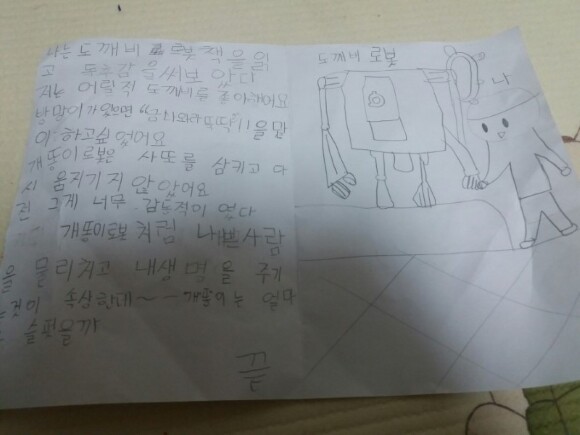 나는 도깨비 로보트 책을 읽
고 독후감을 써보았다
저는 어릴적 도깨비를 좋아했어요
방망이가 있으면 "금나와라 뚝딱!!을 많
이 하고싶었어요
개똥이로봇은 사또를 삼키고 다
시 움지기지 않았어요
전 그게 너무 감동적이 였다
개똥이로봇처럼 나쁜사람
을 물리치고 내생명을 주기
는것이 속상한데~ 개똥이는 얼마
슬펏을까
끝
도깨비 로봇
나